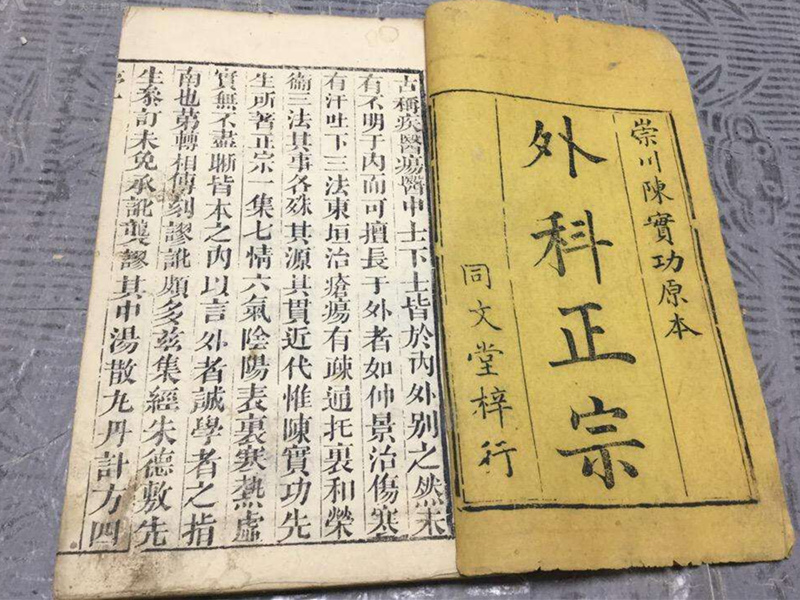 崇川陳實功原本
外科正宗
同文堂梓行
古稱疾醫瘍醫中士下士皆於內外别之然未
有不明于内而可擅長于外者如仲景治傷寒
有汗吐下三法東垣治瘡瘍有疎通托裏和榮
衞三法其事各殊其源其貫近代惟陳實功先
生所著正宗一集七情六氣陰陽表裏寒熱虛
實無不盡晣皆本之内以言外者誠學者之指
南也苐轉相傳刻謬訛頗多兹集經朱德敷先
生叅訂未免承訛襲謬其中湯散九丹計方四